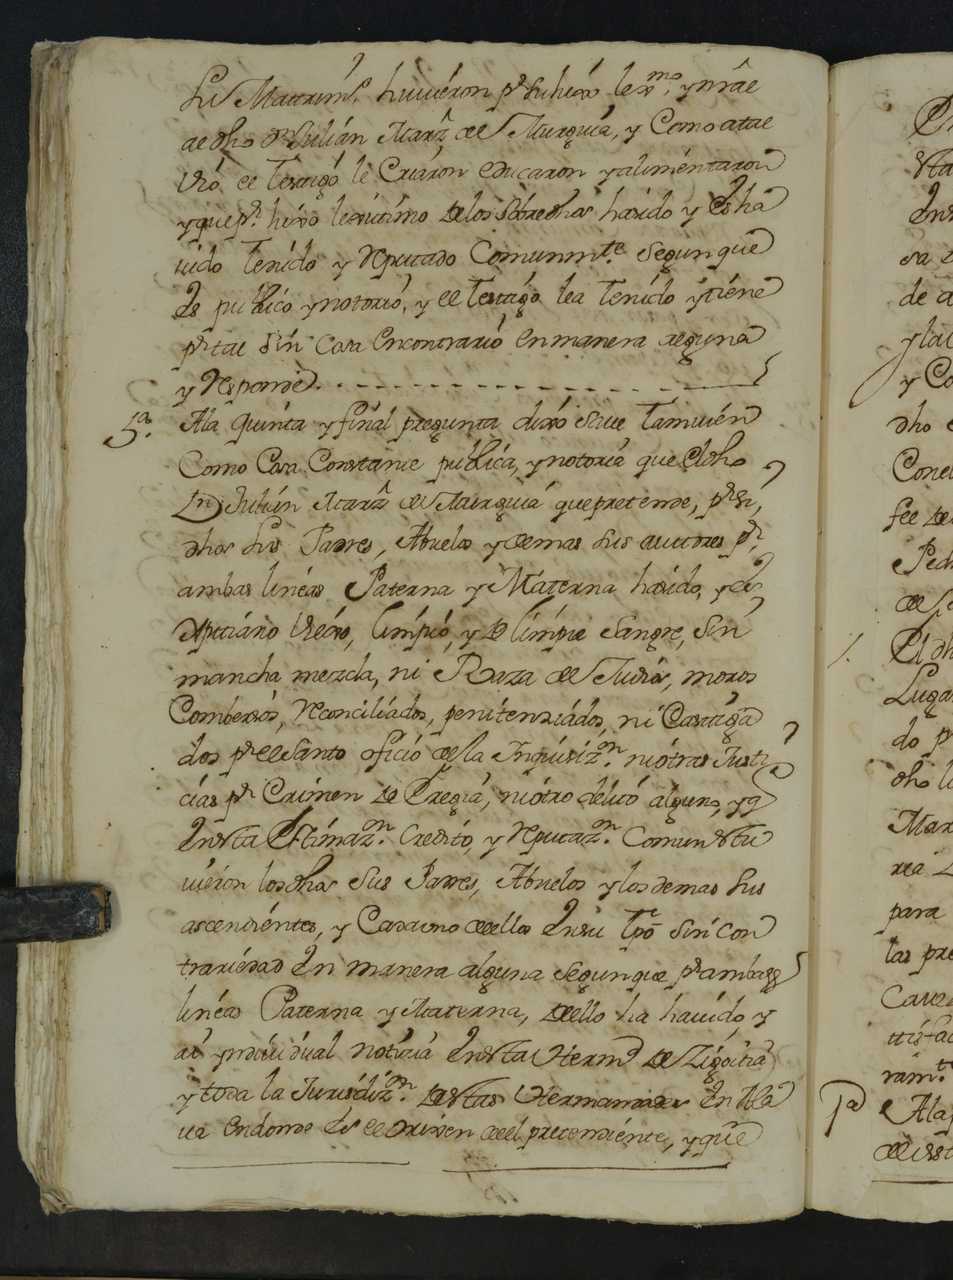 su Matrim.º huvieron p.r su hixo lex.mo y nrâl
al dho Dn Julián Martz de Murguia, y Como a tal
vió el testigo le Criáron educaron y alimentaron
y que p.r hixo lexitimo de los sobredhos ha sido y es ha
vido tenido y reputado Comunm.te segun que
es publico y notorio, y el testigo lea tenido y tiene
p.r tal sin Cosa en contrario en manera alguna
y responde.
5.ª A la quinta y final pregunta dixo save tamvién
Como Cosa Constante pública, y notoria que el dho
Dn Julián Martz de Murguia que pretende, p.r si,
dhos sus Padres, Abuelos y demas sus auctores p.r
ambas lineas Paterna y Materna ha sido, y es
Xptiáno viexo, limpio, y de limpia Sangre, sin
mancha mezcla, ni Raza de Judios, moros
Combersos, reconciliádos, penitenziádos, ni Castiga
dos p.r el Santo oficio de la Inquisiz.on ni otras Justi
cias p.r Crimen de Eregia, ni otro delito alguno, y q
en esta Estimaz.on Credito, y reputaz.on Comun estu
vieron los dhos sus Padres, Abuelos y los demas sus
ascendiéntes, y Cada uno de ellos en su tpo sin con
trariedad en manera alguna segun que p.r ambas
lineas Paterna y Materna, de ello ha havido, y
ai yndividual noticia en esta Herm.d de Zigoitia
y toda la Jurisdiz.on de estas Hermandades en Ala
va en donde es el orixen del pretendiénte, y que